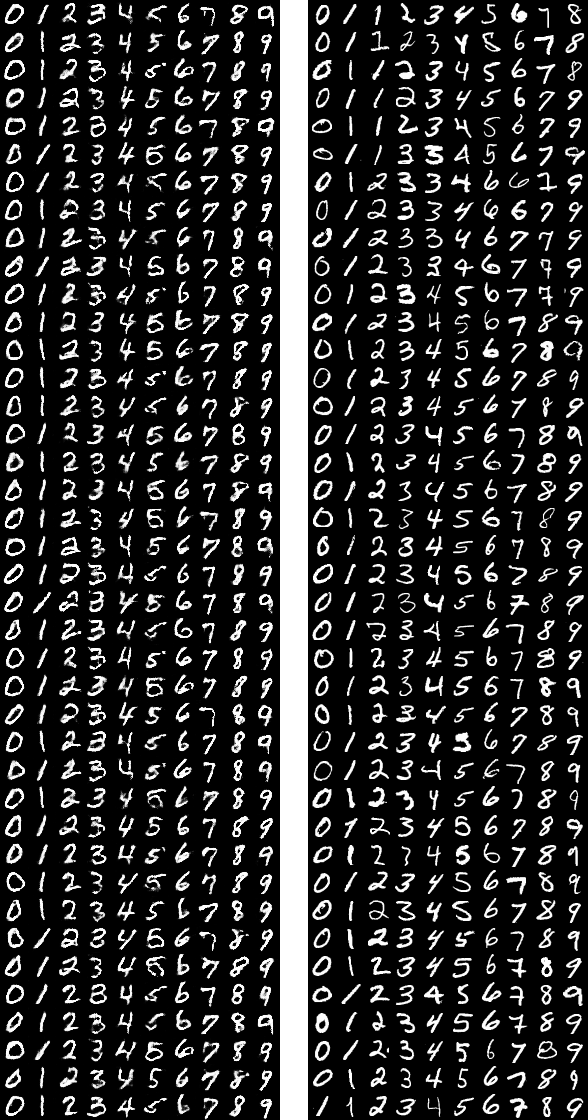 0 1 2 3 4 5 6 7 8 9 0 1 1 2 3 4 5 6 7 8
0 1 2 3 4 5 6 7 8 9 0 1 1 2 3 4 5 6 7 8
0 1 2 3 4 5 6 7 8 9 0 1 1 2 3 4 5 6 7 8
0 1 2 3 4 5 6 7 8 9 0 1 1 2 3 4 5 6 7 9
0 1 2 3 4 5 6 7 8 9 0 1 1 2 3 4 5 6 7 9
0 1 2 3 4 5 6 7 8 9 0 1 1 3 3 4 5 6 7 9
0 1 2 3 4 5 6 7 8 9 0 1 2 3 3 4 6 6 7 9
0 1 2 3 4 5 6 7 8 9 0 1 2 3 3 4 6 6 7 9
0 1 2 3 4 5 6 7 8 9 0 1 2 3 3 4 6 7 7 9
0 1 2 3 4 5 6 7 8 9 0 1 2 3 3 4 6 7 7 9
0 1 2 3 4 5 6 7 8 9 0 1 2 3 4 5 6 7 7 9
0 1 2 3 4 5 6 7 8 9 0 1 2 3 4 5 6 7 8 9
0 1 2 3 4 5 6 7 8 9 0 1 2 3 4 5 6 7 8 9
0 1 2 3 4 5 6 7 8 9 0 1 2 3 4 5 6 7 8 9
0 1 2 3 4 5 6 7 8 9 0 1 2 3 4 5 6 7 8 9
0 1 2 3 4 5 6 7 8 9 0 1 2 3 4 5 6 7 8 9
0 1 2 3 4 5 6 7 8 9 0 1 2 3 4 5 6 7 8 9
0 1 2 3 4 5 6 7 8 9 0 1 2 3 4 5 6 7 8 9
0 1 2 3 4 5 6 7 8 9 0 1 2 3 4 5 6 7 8 9
0 1 2 3 4 5 6 7 8 9 0 1 2 3 4 5 6 7 8 9
0 1 2 3 4 5 6 7 8 9 0 1 2 3 4 5 6 7 8 9
0 1 2 3 4 5 6 7 8 9 0 1 2 3 4 5 6 7 8 9
0 1 2 3 4 5 6 7 8 9 0 1 2 3 4 5 6 7 8 9
0 1 2 3 4 5 6 7 8 9 0 1 2 3 4 5 6 7 8 9
0 1 2 3 4 5 6 7 8 9 0 1 2 3 4 5 6 7 8 9
0 1 2 3 4 5 6 7 8 9 0 1 2 3 4 5 6 7 8 9
0 1 2 3 4 5 6 7 8 9 0 1 2 3 4 5 6 7 8 9
0 1 2 3 4 5 6 7 8 9 0 1 2 3 4 5 6 7 8 9
0 1 2 3 4 5 6 7 8 9 0 1 2 3 4 5 6 7 8 9
0 1 2 3 4 5 6 7 8 9 0 1 2 3 4 5 6 7 8 9
0 1 2 3 4 5 6 7 8 9 0 1 2 3 4 5 6 7 8 9
0 1 2 3 4 5 6 7 8 9 0 1 2 3 4 5 6 7 8 9
0 1 2 3 4 5 6 7 8 9 0 1 2 3 4 5 6 7 8 9
0 1 2 3 4 5 6 7 8 9 0 1 2 3 4 5 6 7 8 9
0 1 2 3 4 5 6 7 8 9 0 1 2 3 4 5 6 7 8 9
0 1 2 3 4 5 6 7 8 9 0 1 2 3 4 5 6 7 8 9
0 1 2 3 4 5 6 7 8 9 0 1 2 3 4 5 6 7 8 9
0 1 2 3 4 5 6 7 8 9 0 1 2 3 4 5 6 7 8 9
0 1 2 3 4 5 6 7 8 9 0 1 2 3 4 5 6 7 8 9
0 1 2 3 4 5 6 7 8 9 1 1 2 3 4 5 6 7 8 9